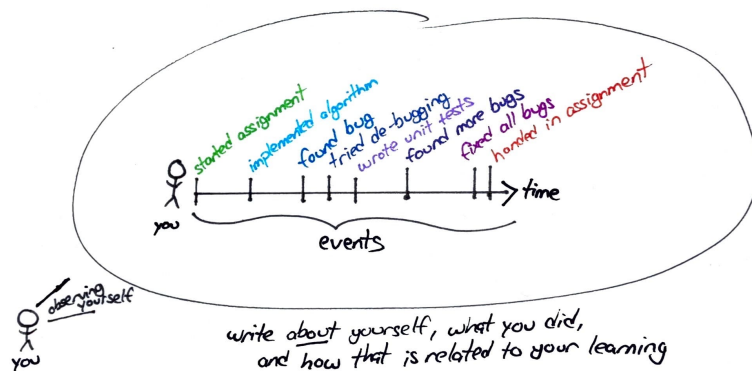 started assignment
implemented algorithm
found bug
tried de-bugging
wrote unit tests
found more bugs
fixed all bugs
handed in assignment
time
you
events
observing
yourself
you
write about yourself, what you did,
and how that is related to your learning